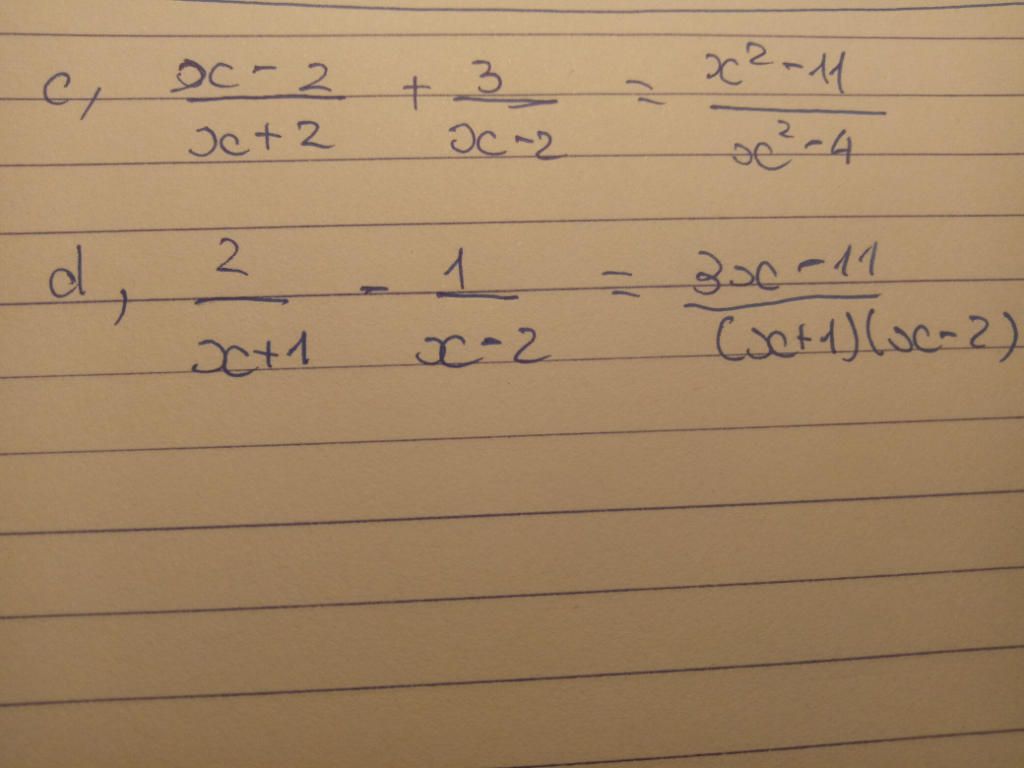 c, (x-2)/(x+2) + 3/(x-2) = (x²-11)/(x²-4)
d, 2/(x+1) - 1/(x-2) = (3x-11)/((x+1)(x-2))